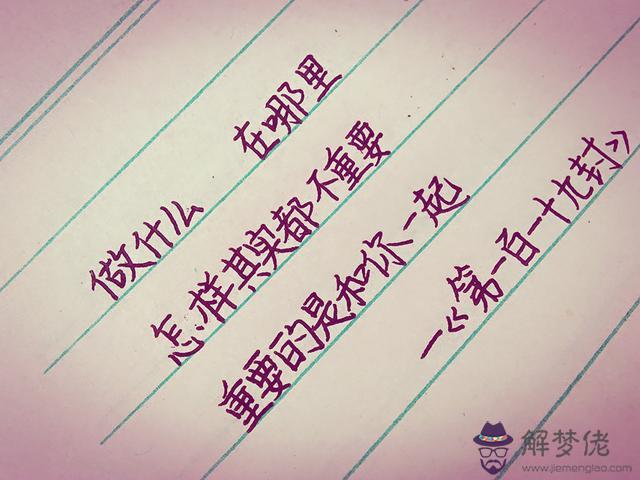 做什么 在哪里
怎样其实都不重要
重要的是和你一起
—《第一百一十九封》
解梦佬
www.jiemenglao.com